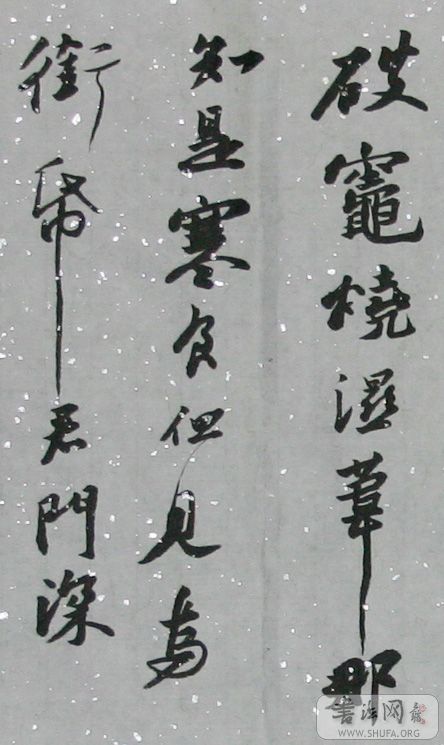 破竈燒濕葦那
知是寒食但見烏
銜帋君門深
書法网
WWW.SHUFA.ORG